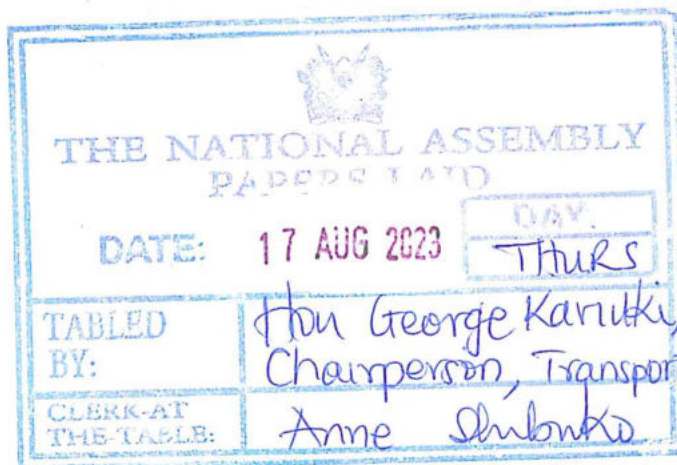 THE NATIONAL ASSEMBLY
PAPERS LAID
DATE: 17 AUG 2023 DAY.
THURS
TABLED BY: Hon George Kariuki,
Chairperson, Transpor
CLERK-AT THE-TABLE: Anne